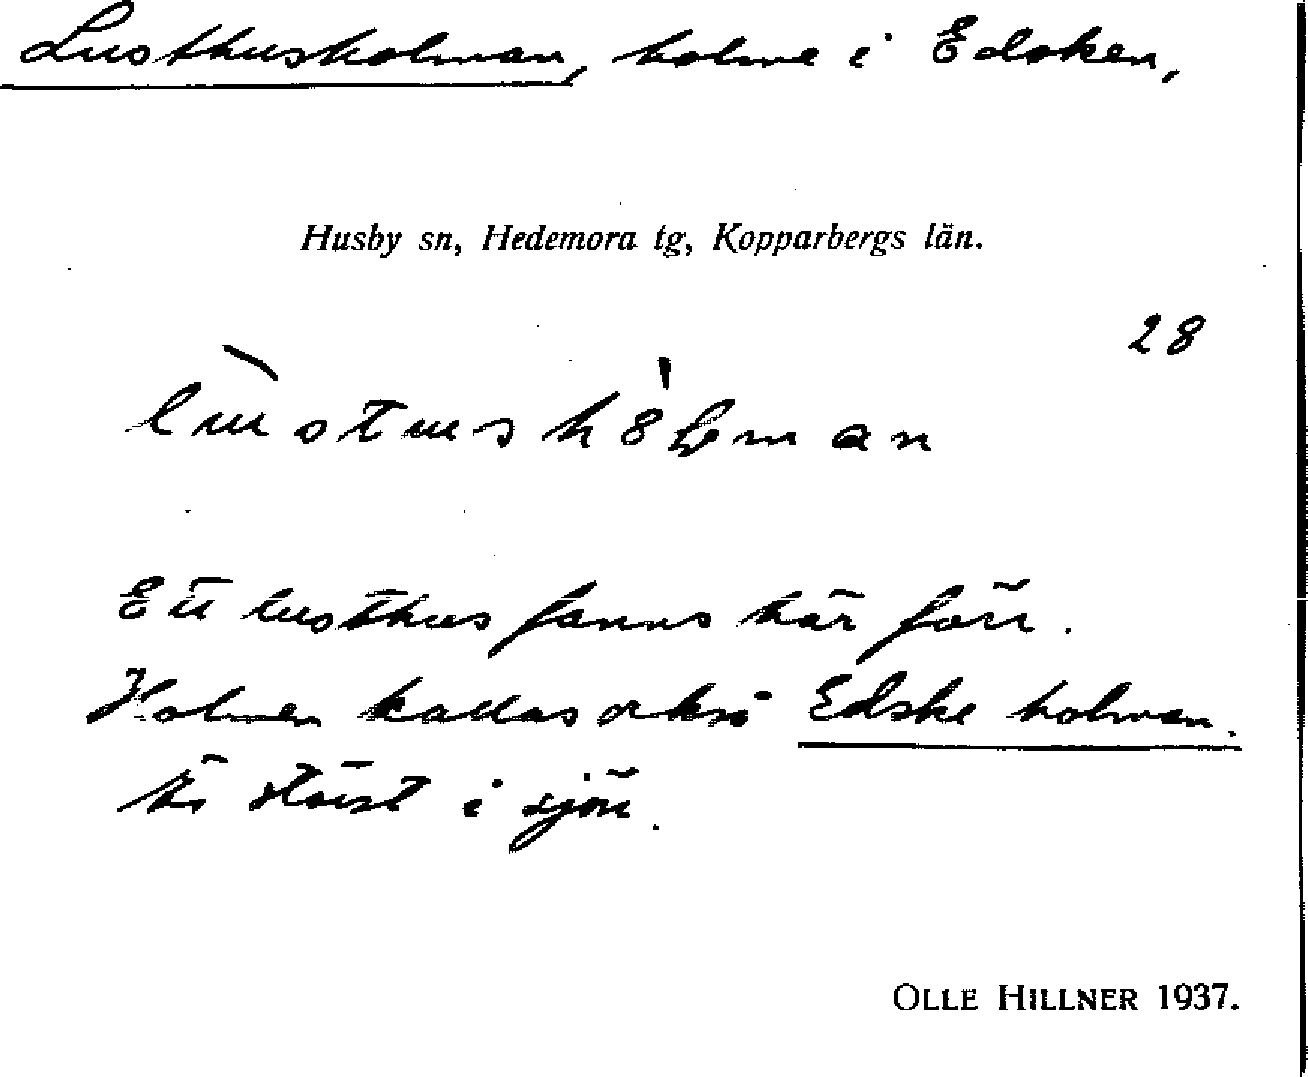 Lusthusholman, holme i Edsken,
Husby sn, Hedemora tg, Kopparbergs län.
28
Ett lusthus fanns här förr.
Holmen kallas också Edske holmen.
Är störst i sjön.
OLLE HILLNER 1937.